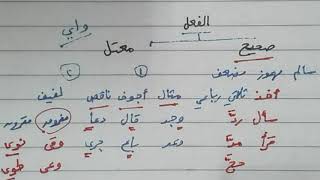 الفعل
صحيح معتل واوي
سالم مهموز مضعف ① ②
أخذ ثلاثي رباعي مثال أجوف ناقص لفيف
سأل ردّ وجد قال دعا مفروق مقرون
قرأ مدّ وعد باع جري وقى نوى
حجّ وعى طوى